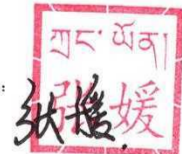 ཀྲང་ཡོན།
: 张媛
张媛